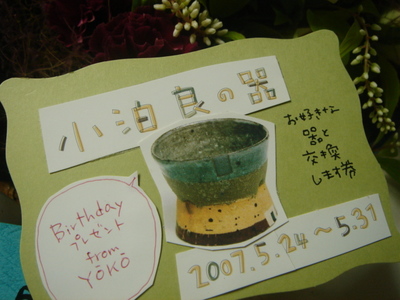 小泊良の器
お好きな
器と
交換
します券
Birthday
プレゼント
from
YŌKŌ
2007.5.24～5.31